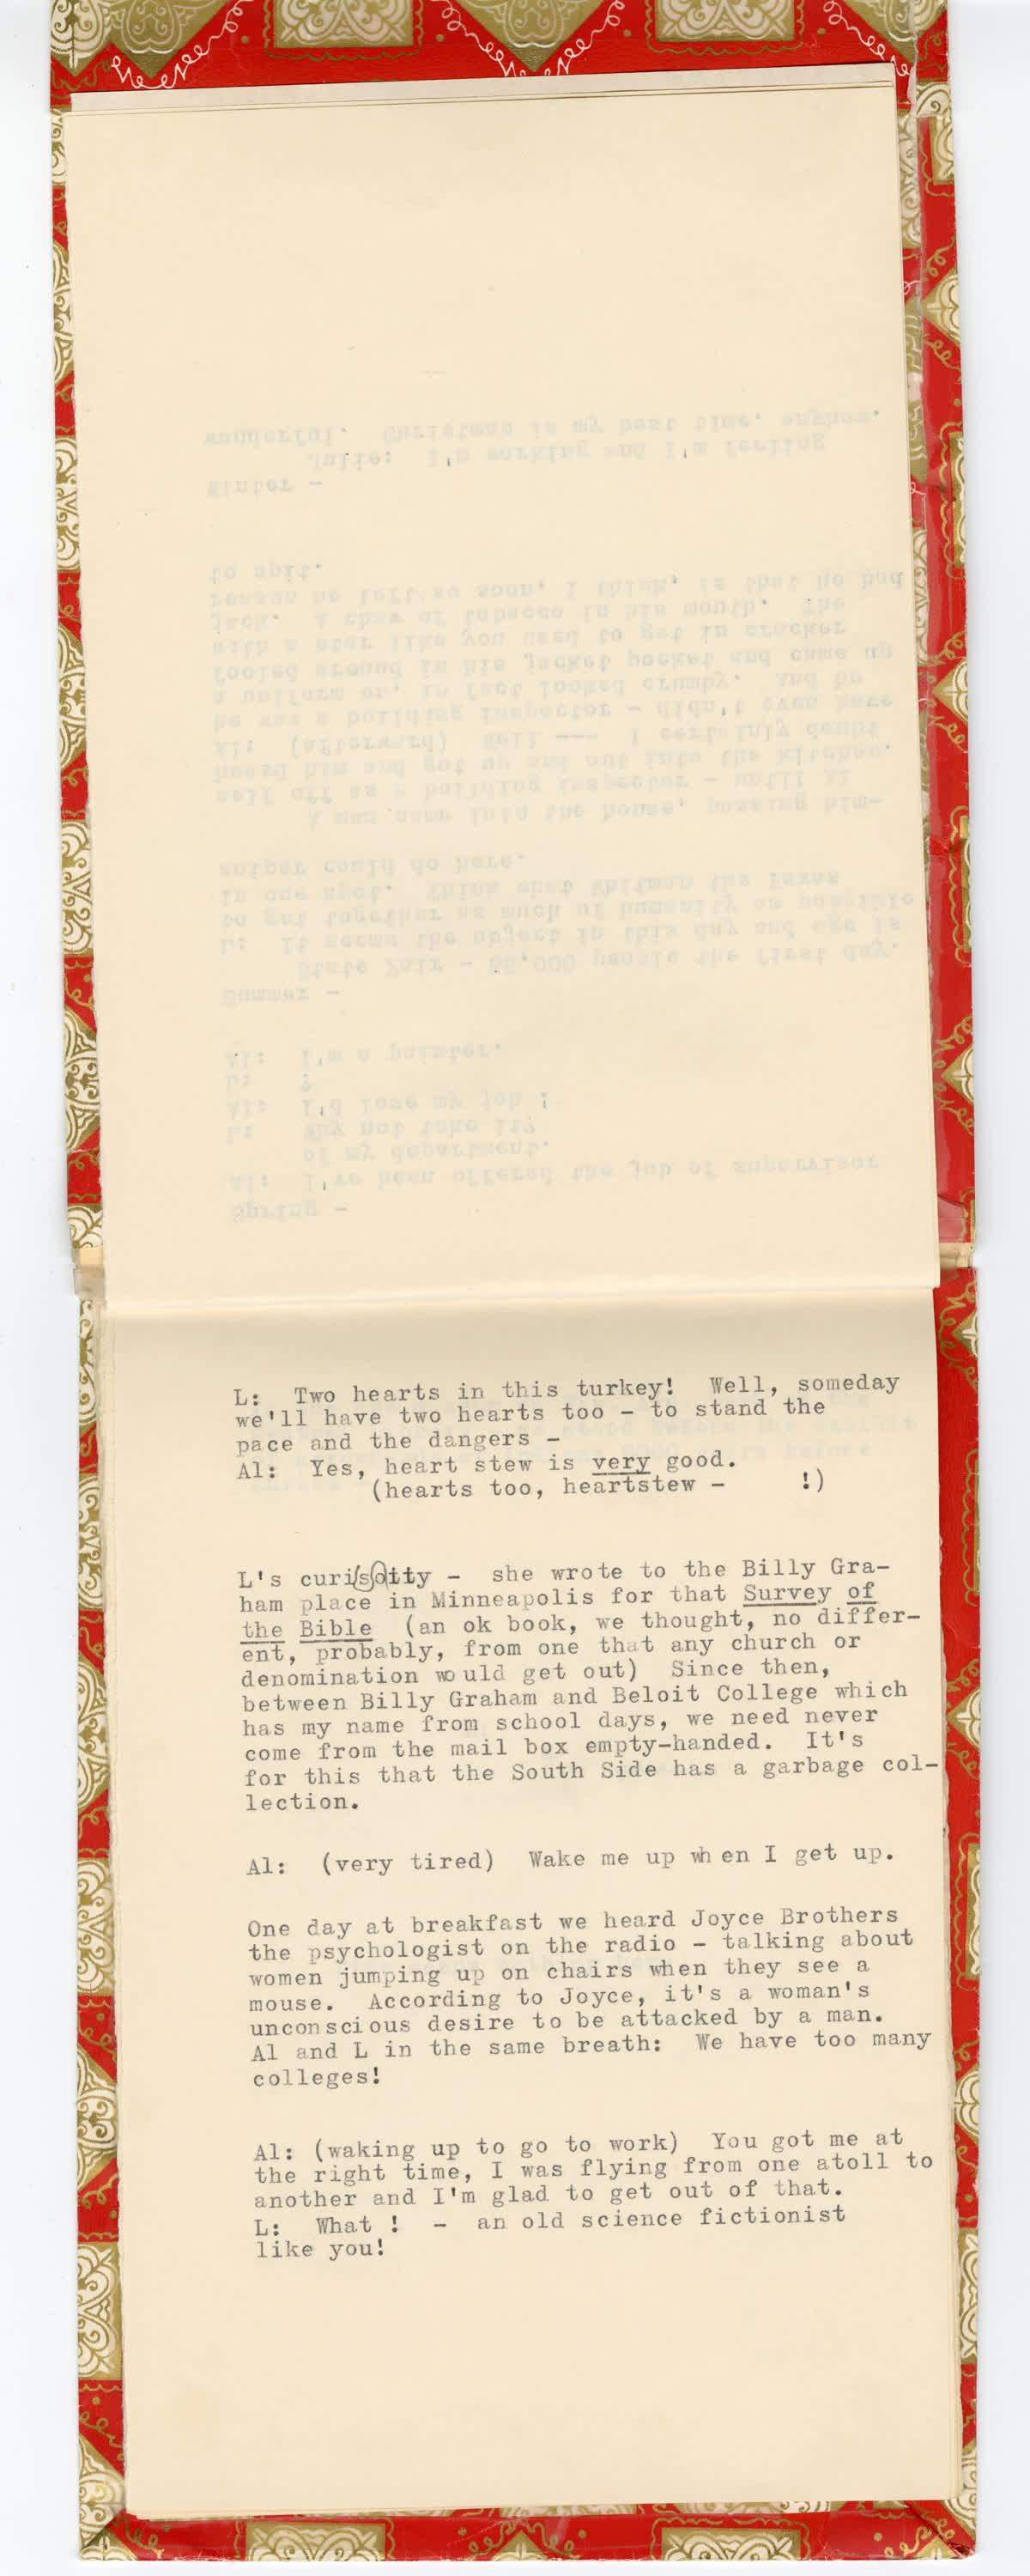 L:  Two hearts in this turkey!  Well, someday
we'll have two hearts too - to stand the
pace and the dangers -
Al:  Yes, heart stew is very good.
(hearts too, heartstew -     !)
L's curisoity -  she wrote to the Billy Gra-
ham place in Minneapolis for that Survey of
the Bible  (an ok book, we thought, no differ-
ent, probably, from one that any church or
denomination would get out)  Since then,
between Billy Graham and Beloit College which
has my name from school days, we need never
come from the mail box empty-handed.  It's
for this that the South Side has a garbage col-
lection.
Al:  (very tired)  Wake me up when I get up.
One day at breakfast we heard Joyce Brothers
the psychologist on the radio - talking about
women jumping up on chairs when they see a
mouse.  According to Joyce, it's a woman's
unconscious desire to be attacked by a man.
Al and L in the same breath:  We have too many
colleges!
Al: (waking up to go to work)  You got me at
the right time, I was flying from one atoll to
another and I'm glad to get out of that.
L:  What !  -  an old science fictionist
like you!